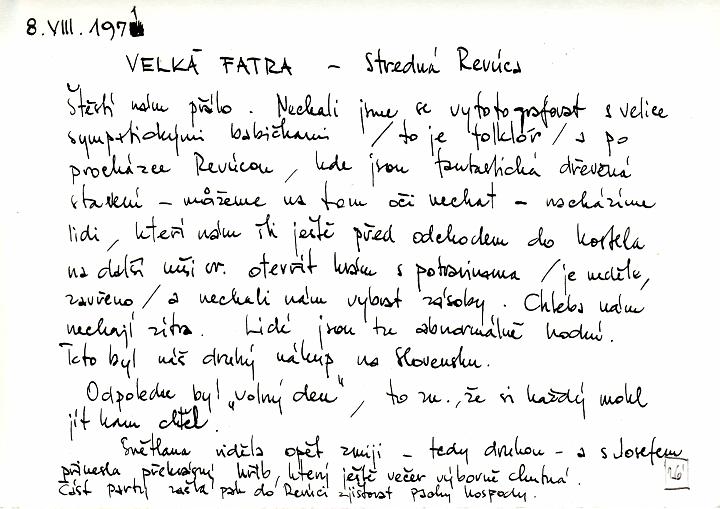 8.VIII.1971
VELKÁ FATRA – Stredná Revúca
Štěstí nám přálo. Nechali jsme se vyfotografovat s velice
sympatickými babičkami /to je folklór/ a po
procházce Revúcou, kde jsou fantastická dřevěná
stavení – můžeme na tom oči nechat – nacházíme
lidi, kteří nám šli ještě před odchodem do kostela
na další mši sv. otevřít krám s potravinama /je neděle,
zavřeno/ a nechali nám vybrat zásoby. Chleba nám
nechají zítra. Lidé jsou tu abnormálně hodní.
Toto byl náš druhý nákup na Slovensku.
Odpoledne byl „volný den", to zn., že si každý mohl
jít kam chtěl.
Světlana viděla opět zmiji – tedy druhou – a s Josefem
přinesla překrásný hřib, který ještě večer výborně chutná.
Část party zašla pak do Revúci zjišťovat pachy hospody.
26